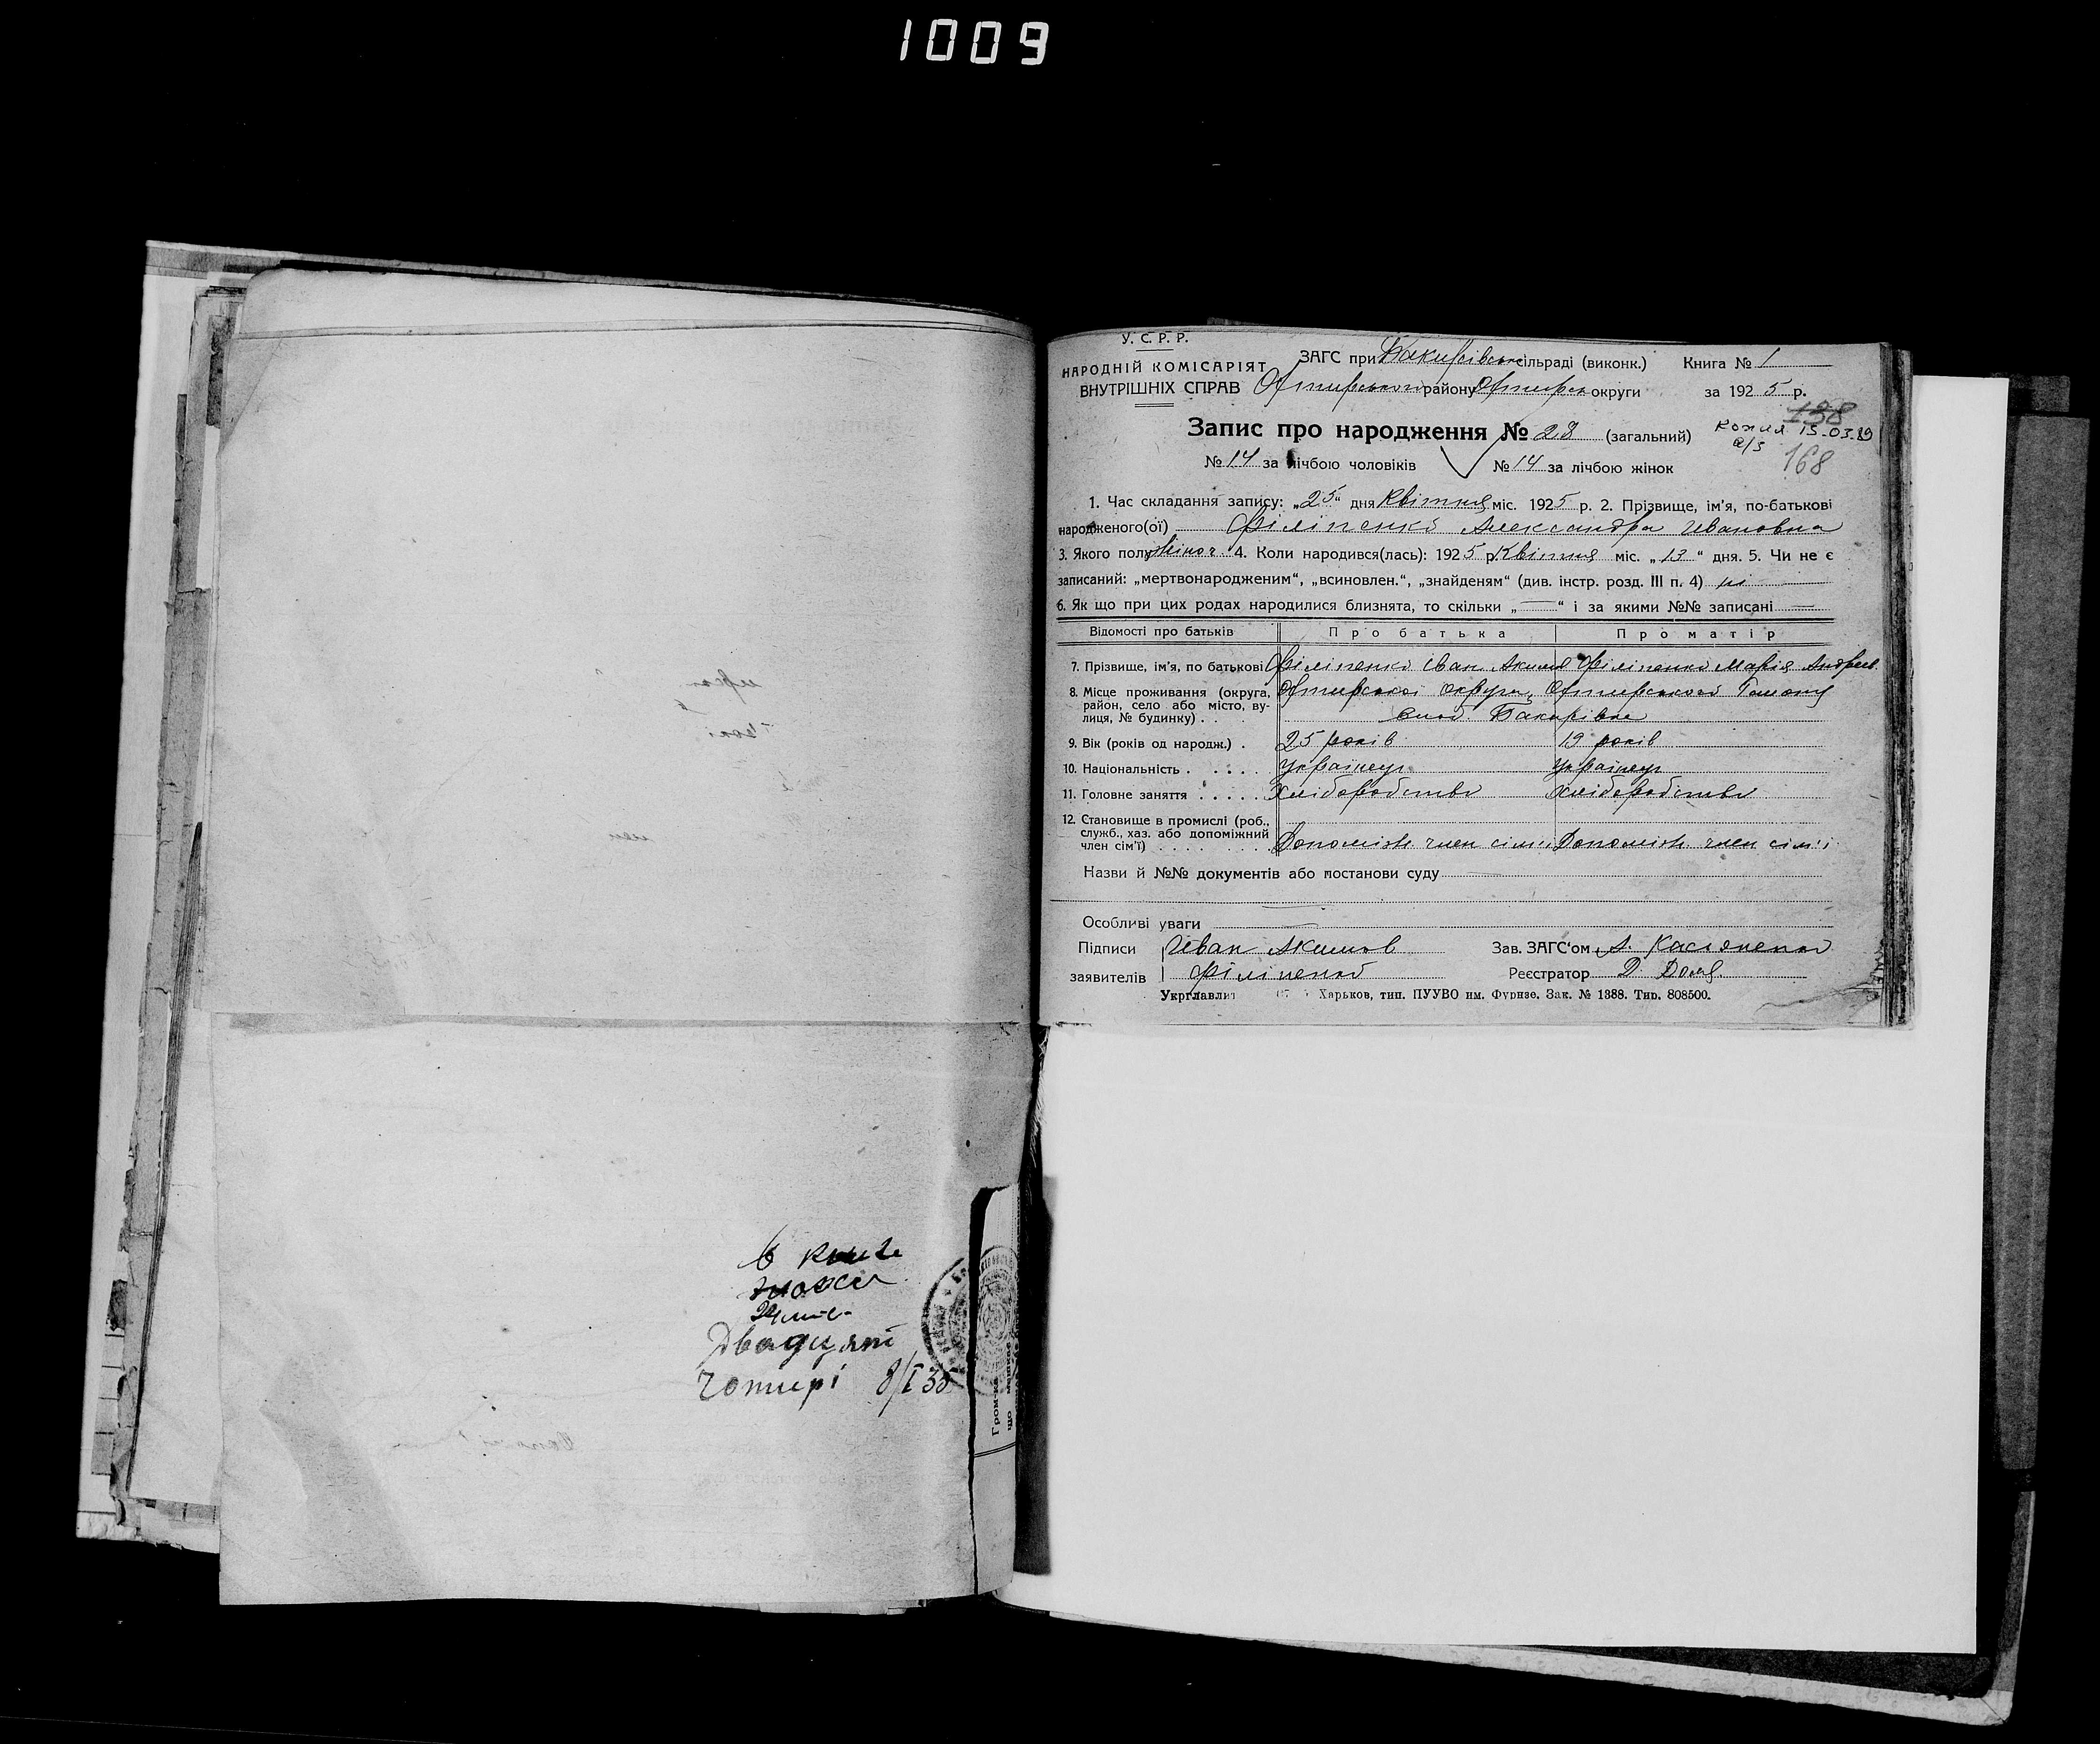 1009
У. С. Р. Р.
НАРОДНІЙ КОМІСАРІЯТ
ВНУТРІШНІХ СПРАВ
ЗАГС при Бакирівськ сільраді (виконк.) Книга № 1
Охтирського району Охтирськ округи за 1925 р.
138
Запис про народження № 28 (загальний)
копия 15-03-89
168
№ 14 за лічбою чоловіків № 14 за лічбою жінок
1. Час складання запису: „25“ дня Квітня міс. 1925 р. 2. Прізвище, ім’я, по-батькові
народженого(ої) Філіпенко Александра Ивановна
3. Якого полу жіноч 4. Коли народився(лась): 1925 р. Квітня міс. „13“ дня. 5. Чи не є
записаний: „мертвонародженим“, „всиновлен.“, „знайденям“ (див. інстр. розд. III п. 4) ні
6. Як що при цих родах народилися близнята, то скільки „—“ і за якими №№ записані —
Відомості про батьків Про батька Про матір
7. Прізвище, ім’я, по батькові Філіпенко Іван Акимов Філіпенко Марія Андреев.
8. Місце проживання (округа, район, село або місто, вулиця, № будинку) . . Охтирської округи, Охтирського
слоб. Бакирівка
9. Вік (років од народж.) . 25 років 19 років
10. Національність . . . . . Українец Українец
11. Головне заняття . . . . . Хліборобство Хліборобство
12. Становище в промислі (роб., служб., хаз. або допоміжний член сім’ї) . . . . Допоміж. член сім'ї Допоміж. член сім'ї
Назви й №№ документів або постанови суду
Особливі уваги
Підписи Иван Акимов Зав. ЗАГС‘ом А. Касьяненко
заявителів Філіпенко Реєстратор Д.
Укрглавлит Харьков, тип. ПУУВО им. Фрунзе. Зак. № 1388. Тир. 808500.
Двадцят
чотирі 8/I 35